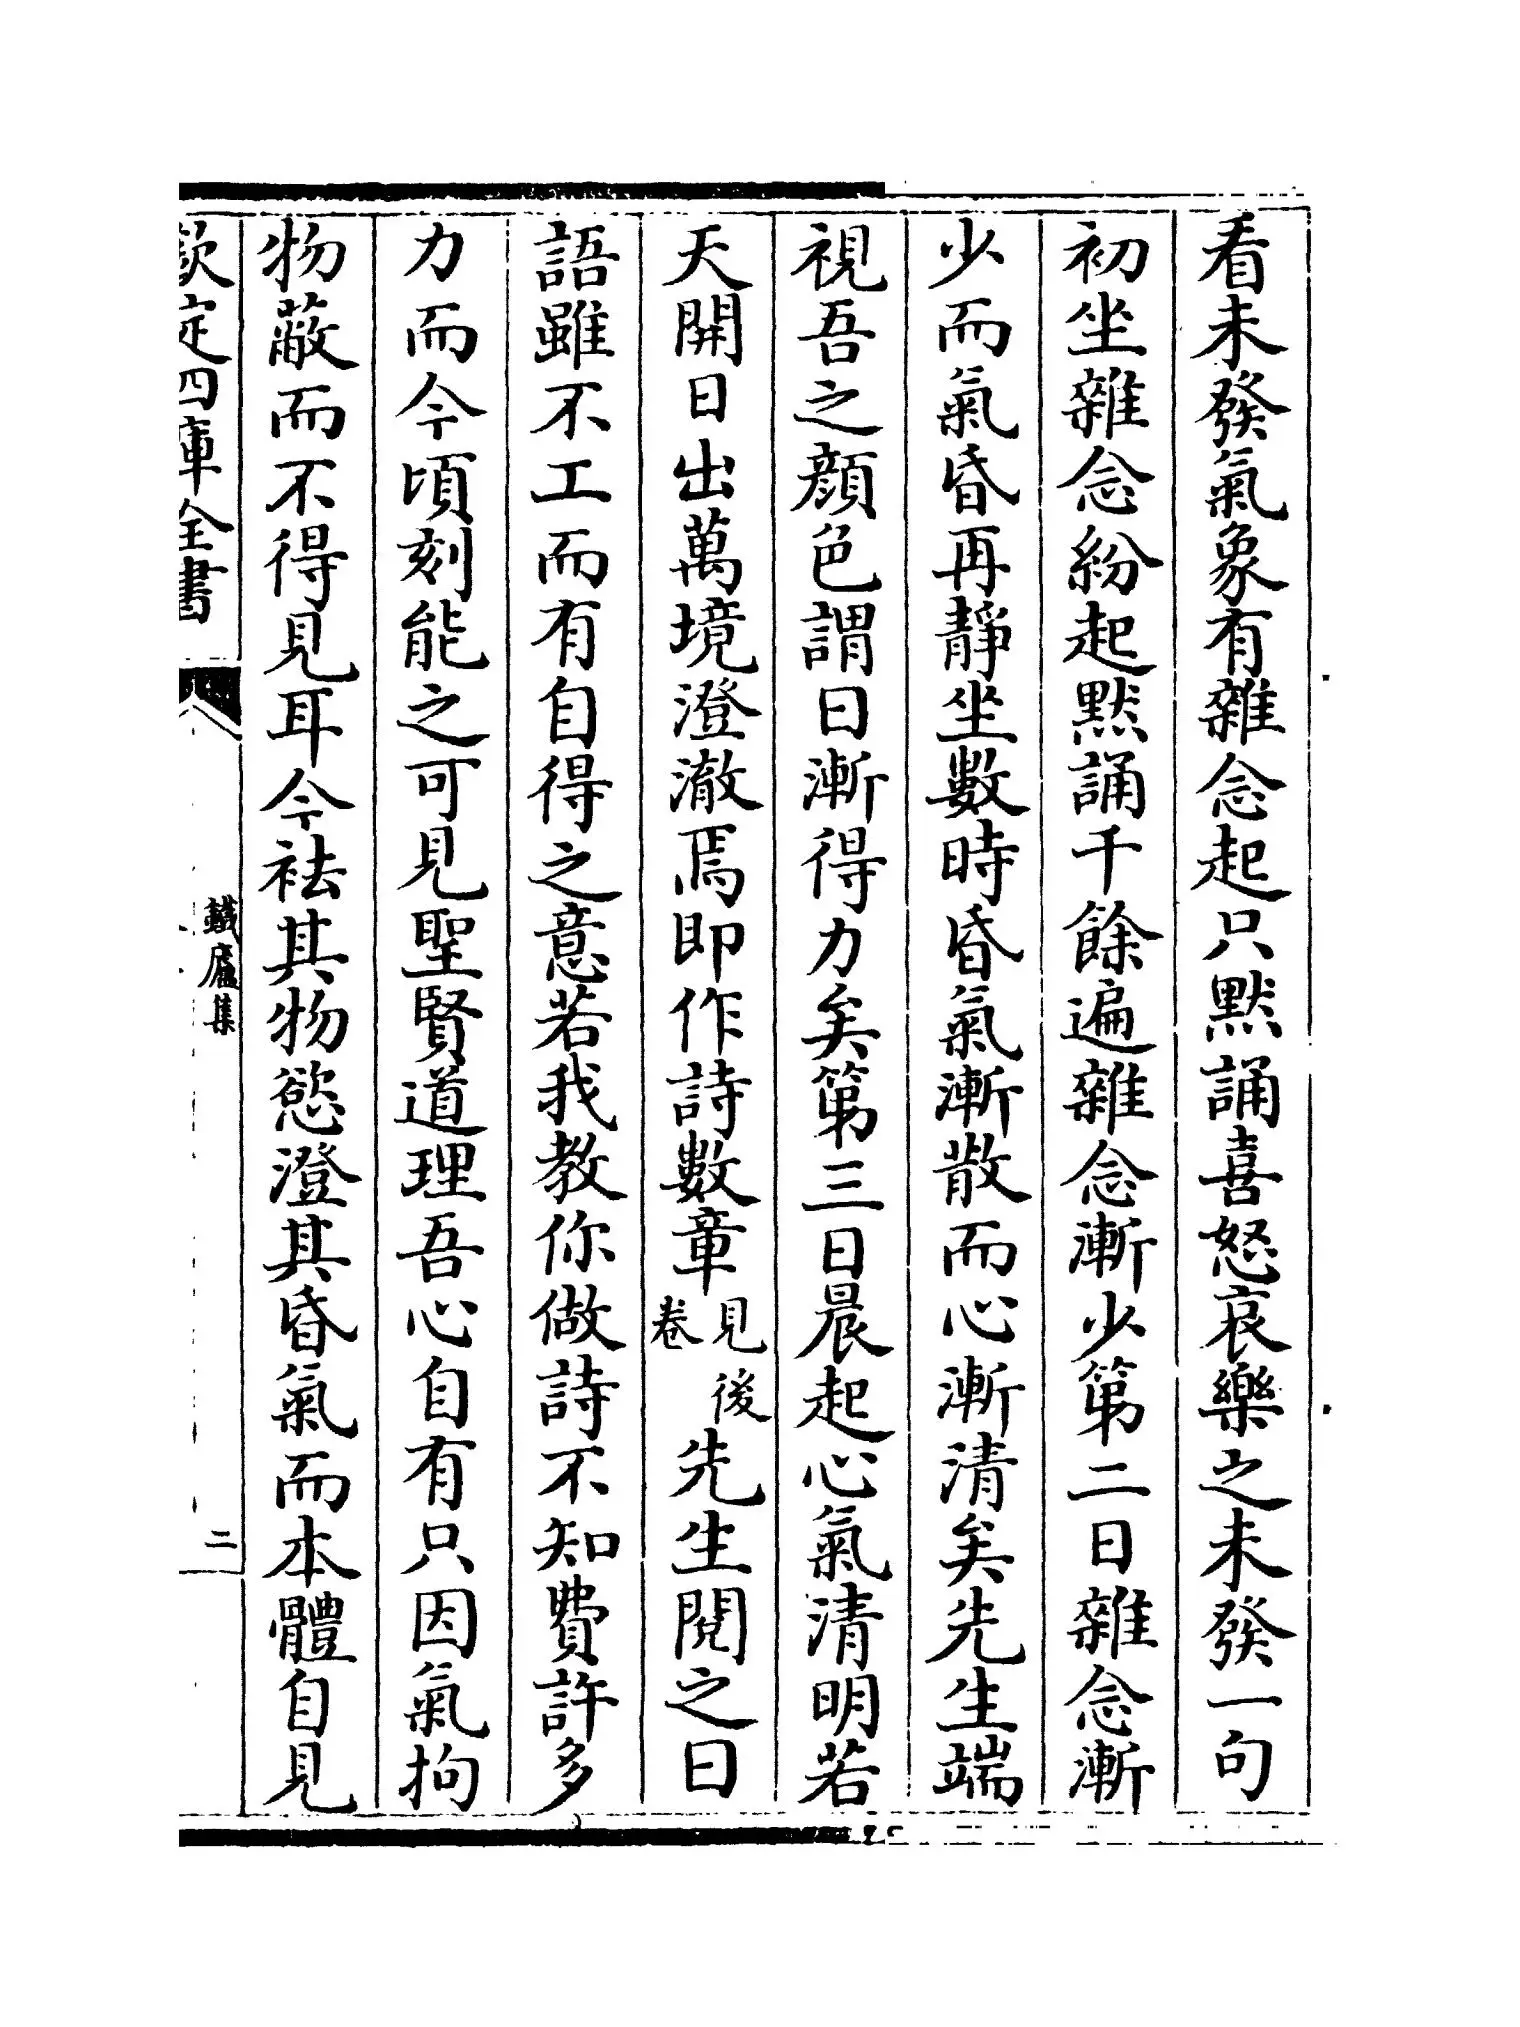 看未發氣象有雜念起只默誦喜怒哀樂之未發一句
初坐雜念紛起默誦千餘遍雜念漸少第二日雜念漸
少而氣昏再靜坐數時昏氣漸散而心漸清矣先生端
視吾之顔色謂曰漸得力矣第三日晨起心氣清明若
天開日出萬境澄澈焉即作詩數章見後卷先生閱之曰
語雖不工而有自得之意若我教你做詩不知費許多
力而今頃刻能之可見聖賢道理吾心自有只因氣拘
物蔽而不得見耳今袪其物慾澄其昏氣而本體自見
欽定四庫全書
鐵廬集
二